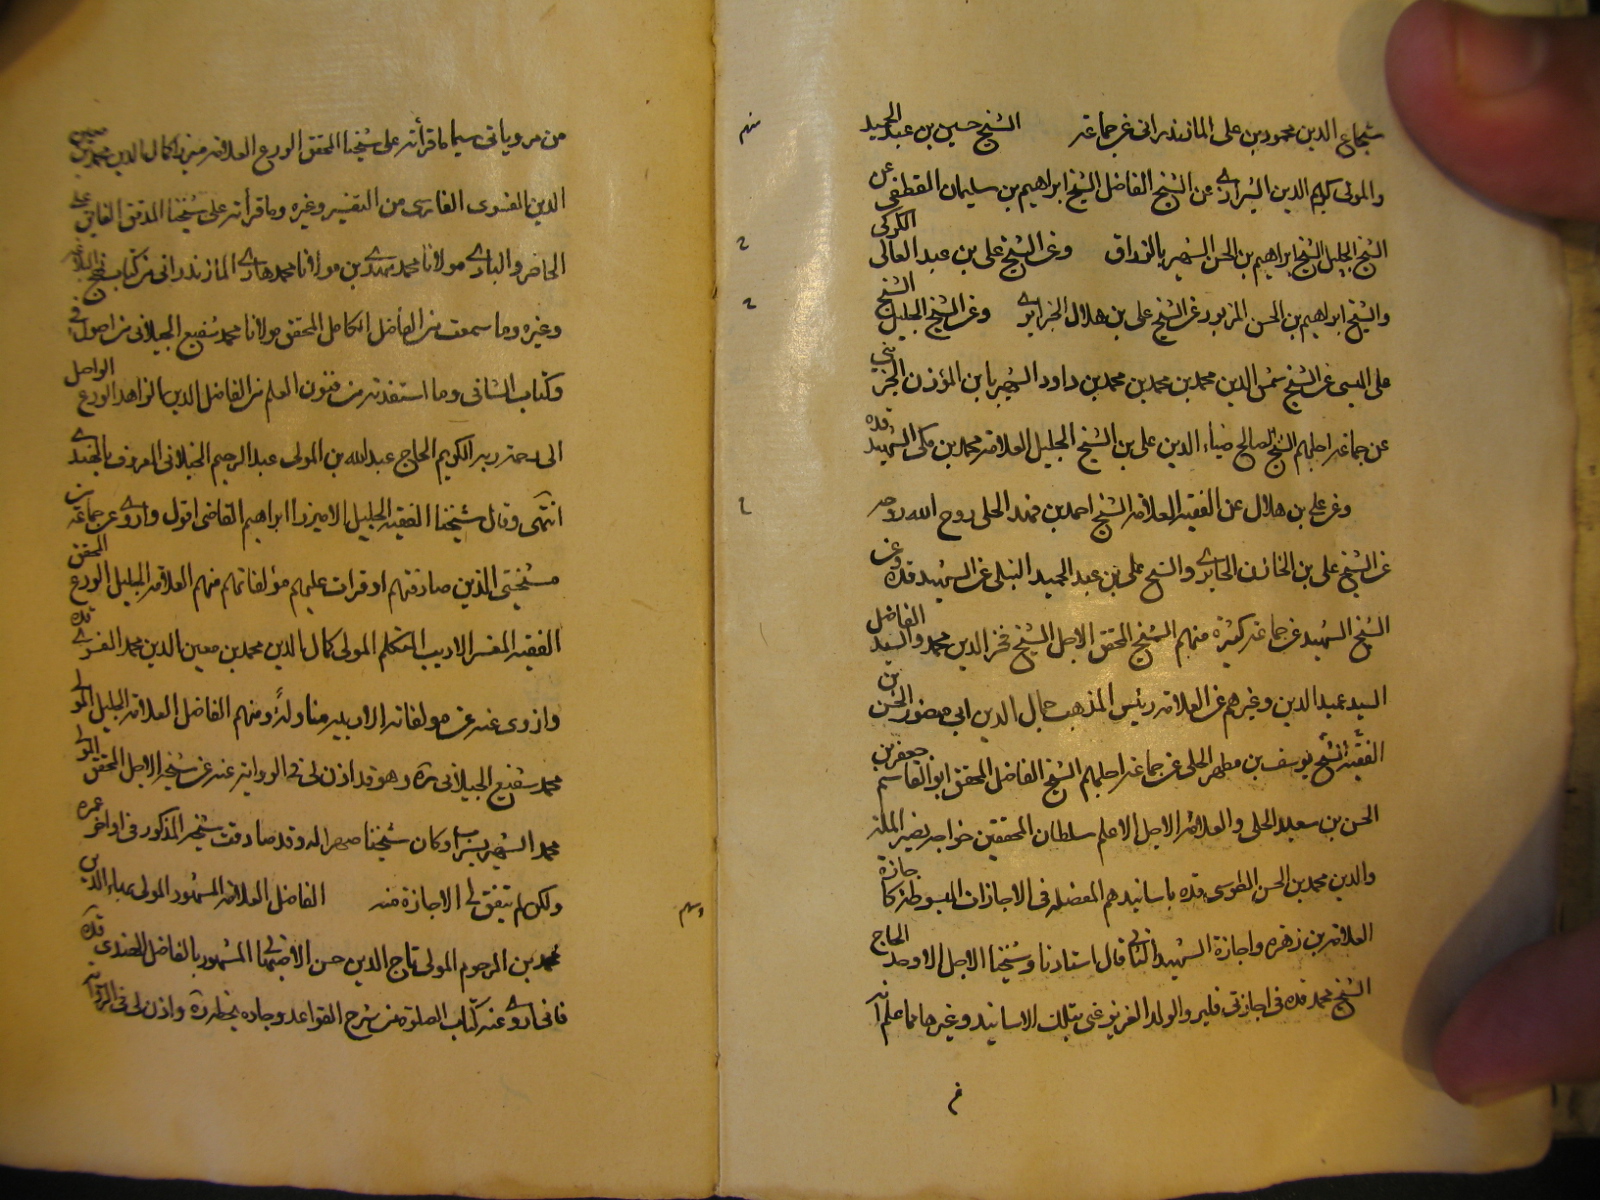 شجاع الدين محمود بن على المازندرانى عن جماعة منهم الشيخ حسين بن عبد الحميد
والمولى كريم الدين الشيرازى عن الشيخ الفاضل الشيخ ابراهيم بن سليمان القطيفى عن
الشيخ الجليل الشيخ ابراهيم بن الحسن الشهير بالوراق وعن الشيخ على بن عبد العالى الكركى
والشيخ ابراهيم بن الحسن المزبور عن الشيخ على بن هلال الجزايرى وعن الشيخ الجليل الشيخ
على الميسى عن الشيخ شمس الدين محمد بن محمد بن محمد بن داود الشهير بابن المؤذن الجزينى
عن جماعة اجلهم الشيخ الصالح ضياء الدين على بن الشيخ الجليل العلامة محمد بن مكى الشهيد قده
وعن على بن هلال عن الفقيه العلامة الشيخ احمد بن فهد الحلى روح الله روحه
عن الشيخ على بن الخازن الحايرى والشيخ على بن عبد الحميد النيلى عن الشهيد قده وعن
الشيخ الشهيد عن جماعة كثيرة منهم الشيخ المحقق الاجل الشيخ فخر الدين محمد والسيد الفاضل
السيد عميد الدين وغيرهم عن العلامة رئيس المذهب جمال الدين ابى منصور الحسن بن
الفقيه الشيخ يوسف بن مطهر الحلى عن جماعة اجلهم الشيخ الفاضل المحقق ابو القاسم جعفر بن
الحسن بن سعيد الحلى والعلامة الاجل الاعلم سلطان المحققين خواجه نصير الملة
والدين محمد بن الحسن الطوسى قده باسانيدهم المفصلة فى الاجازات المبسوطة كاجازة
العلامة بن زهره واجازة الشهيد الثانى قال استادنا وشيخنا الاجل الاوحد الحاج
الشيخ محمد قده فى اجازتى فليرو الولد العزيز عنى بتلك الاسانيد وغيرها مما علم انه
من مروياتى سيما ما قرأته على شيخنا المحقق الورع العلامة ميرزا كمال الدين محمد بن معين
الدين الفسوى الفارسى من التفسير وغيره وما قرأته على شيخنا المدقق الفايق على
الحاضر والبادى مولانا محمد مهدى بن مولانا محمد هادى المازندرانى من كتاب نهج البلاغه
وغيره وما سمعت من الفاضل الكامل المحقق مولانا محمد شفيع الجيلانى من اصول فى
وكتاب الشافى وما استفدته من فنون العلم من الفاضل الدين الزاهد الورع الواصل
الى رحمة ربه الكريم الحاج عبد الله بن المولى عبد الرحيم الجيلانى المعروف بالجندى
انتهى وقال شيخنا الفقيه الجليل الاميرزا ابراهيم القاضى اقول واروى عن جماعة من
مشيختى الذين صادفتهم او قرات عليهم مؤلفاتهم منهم العلامة الجليل الورع المحقق
الفقيه المفسر الاديب المتكلم المولى كمال الدين محمد بن معين الدين محمد الفسوى قده
واروى عنه عن مولفاته الادبيه مناولةً ومنهم الفاضل العلامة الجليل المولى
محمد شفيع الجيلانى ره وهو قد اذن لى فى الرواية عنه عن شيخه الاجل المحقق المولى
محمد الشهير بسراب وكان شيخنا صهرا له وقد صادفت شيخه المذكور فى اواخر عمره
ولكن لم يتفق لى الاجازة منه ومنهم الفاضل العلامة المشهور المولى بهاء الدين
محمد بن المرحوم المولى تاج الدين حسن الاصفهانى المشهور بالفاضل الهندى قده
فانى اروى عنه كتاب الصلوة من شرح القواعد وجاده بخطه ره واذن لى فى الرواية